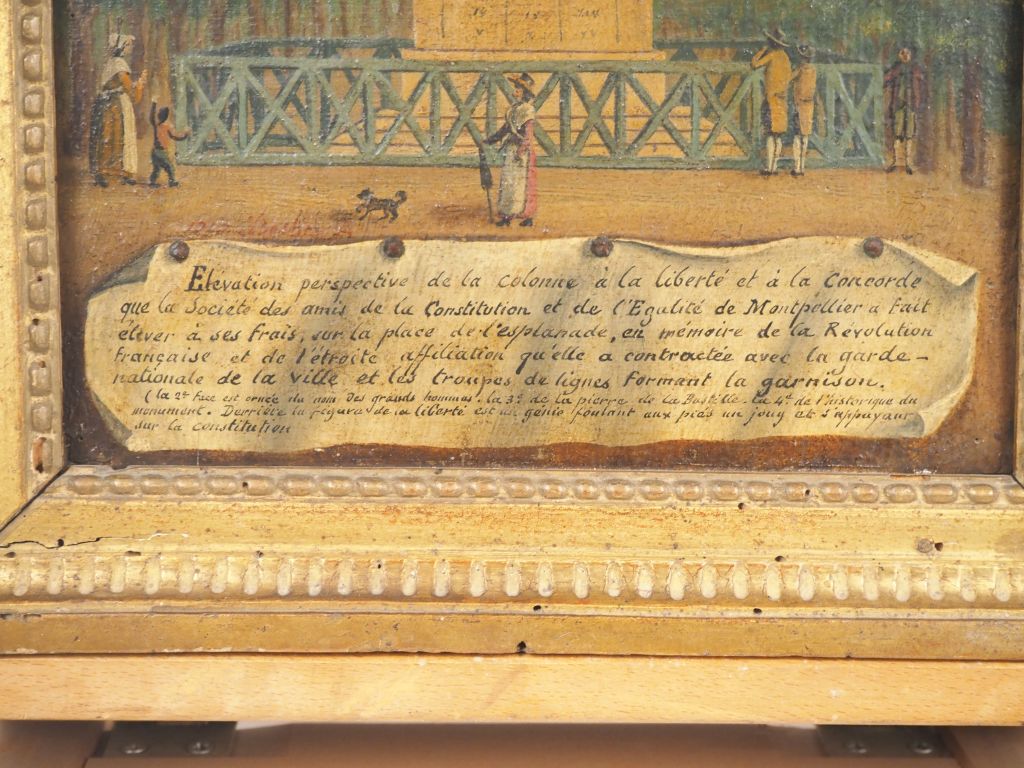 Elévation perspective de la colonne à la liberté et à la Concorde
que la Société des amis de la Constitution et de l'Egalité de Montpellier a fait
élever à ses frais, sur la place de l'esplanade, en mémoire de la Révolution
française et de l'étroite affiliation qu'elle a contractée avec la garde-
nationale de la ville et les troupes de lignes formant la garnison.
(la 2e face est ornée du nom des grands hommes. la 3e de la pierre de la Bastille. la 4e de l'historique du
monument. Derrière la figure de la liberté est un génie foulant aux piés un joug et s'appuyant
sur la constitution